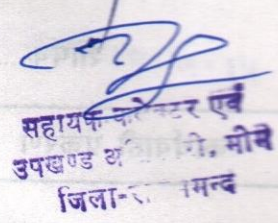 सहायक कलेक्टर एवं
उपखण्ड अ री, भीम
जिला-रा मन्द